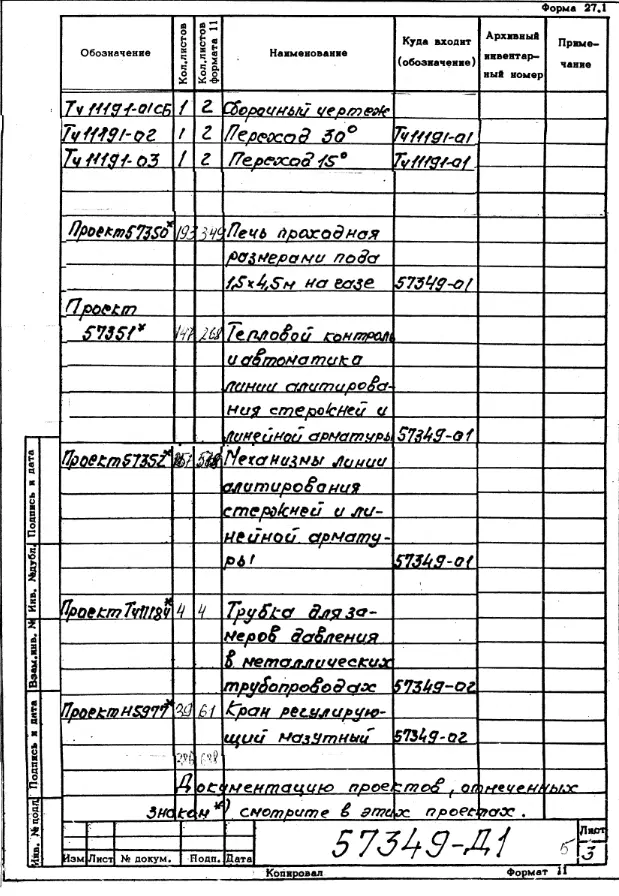 Форма 27.1
Обозначение Кол.листов Кол.листов формата 11 Наименование Куда входит (обозначение) Архивный инвентарный номер Примечание
Тч11191-01сб 1 2 Сборочный чертеж
Тч11191-02 1 2 Переход 30° Тч11191-01
Тч11191-03 1 2 Переход 15° Тч11191-01
Проект 57350* 193 349 Печь проходная
размерами пода
1,5х4,5м на газе 57349-01
Проект
57351* 147 268 Тепловой контроль
и автоматика
линии алитирова-
ния стержней и
линейной арматуры 57349-01
Проект 57352* Механизмы линии
алитирования
стержней и ли-
нейной армату-
ры 57349-01
Проект Тч11184* 4 4 Трубка для за-
меров давления
в металлических
трубопроводах 57349-02
Проект Н5977* 39 61 Кран регулирую-
щий мазутный 57349-02
Документацию проектов, отмеченных
знаком *) смотрите в этих проектах.
Инв. № подл. Подпись и дата Взам.инв. № Инв. №дубл. Подпись и дата
Изм Лист № докум. Подп. Дата
57349-Д1
5
Лист
3
Копировал Формат 11